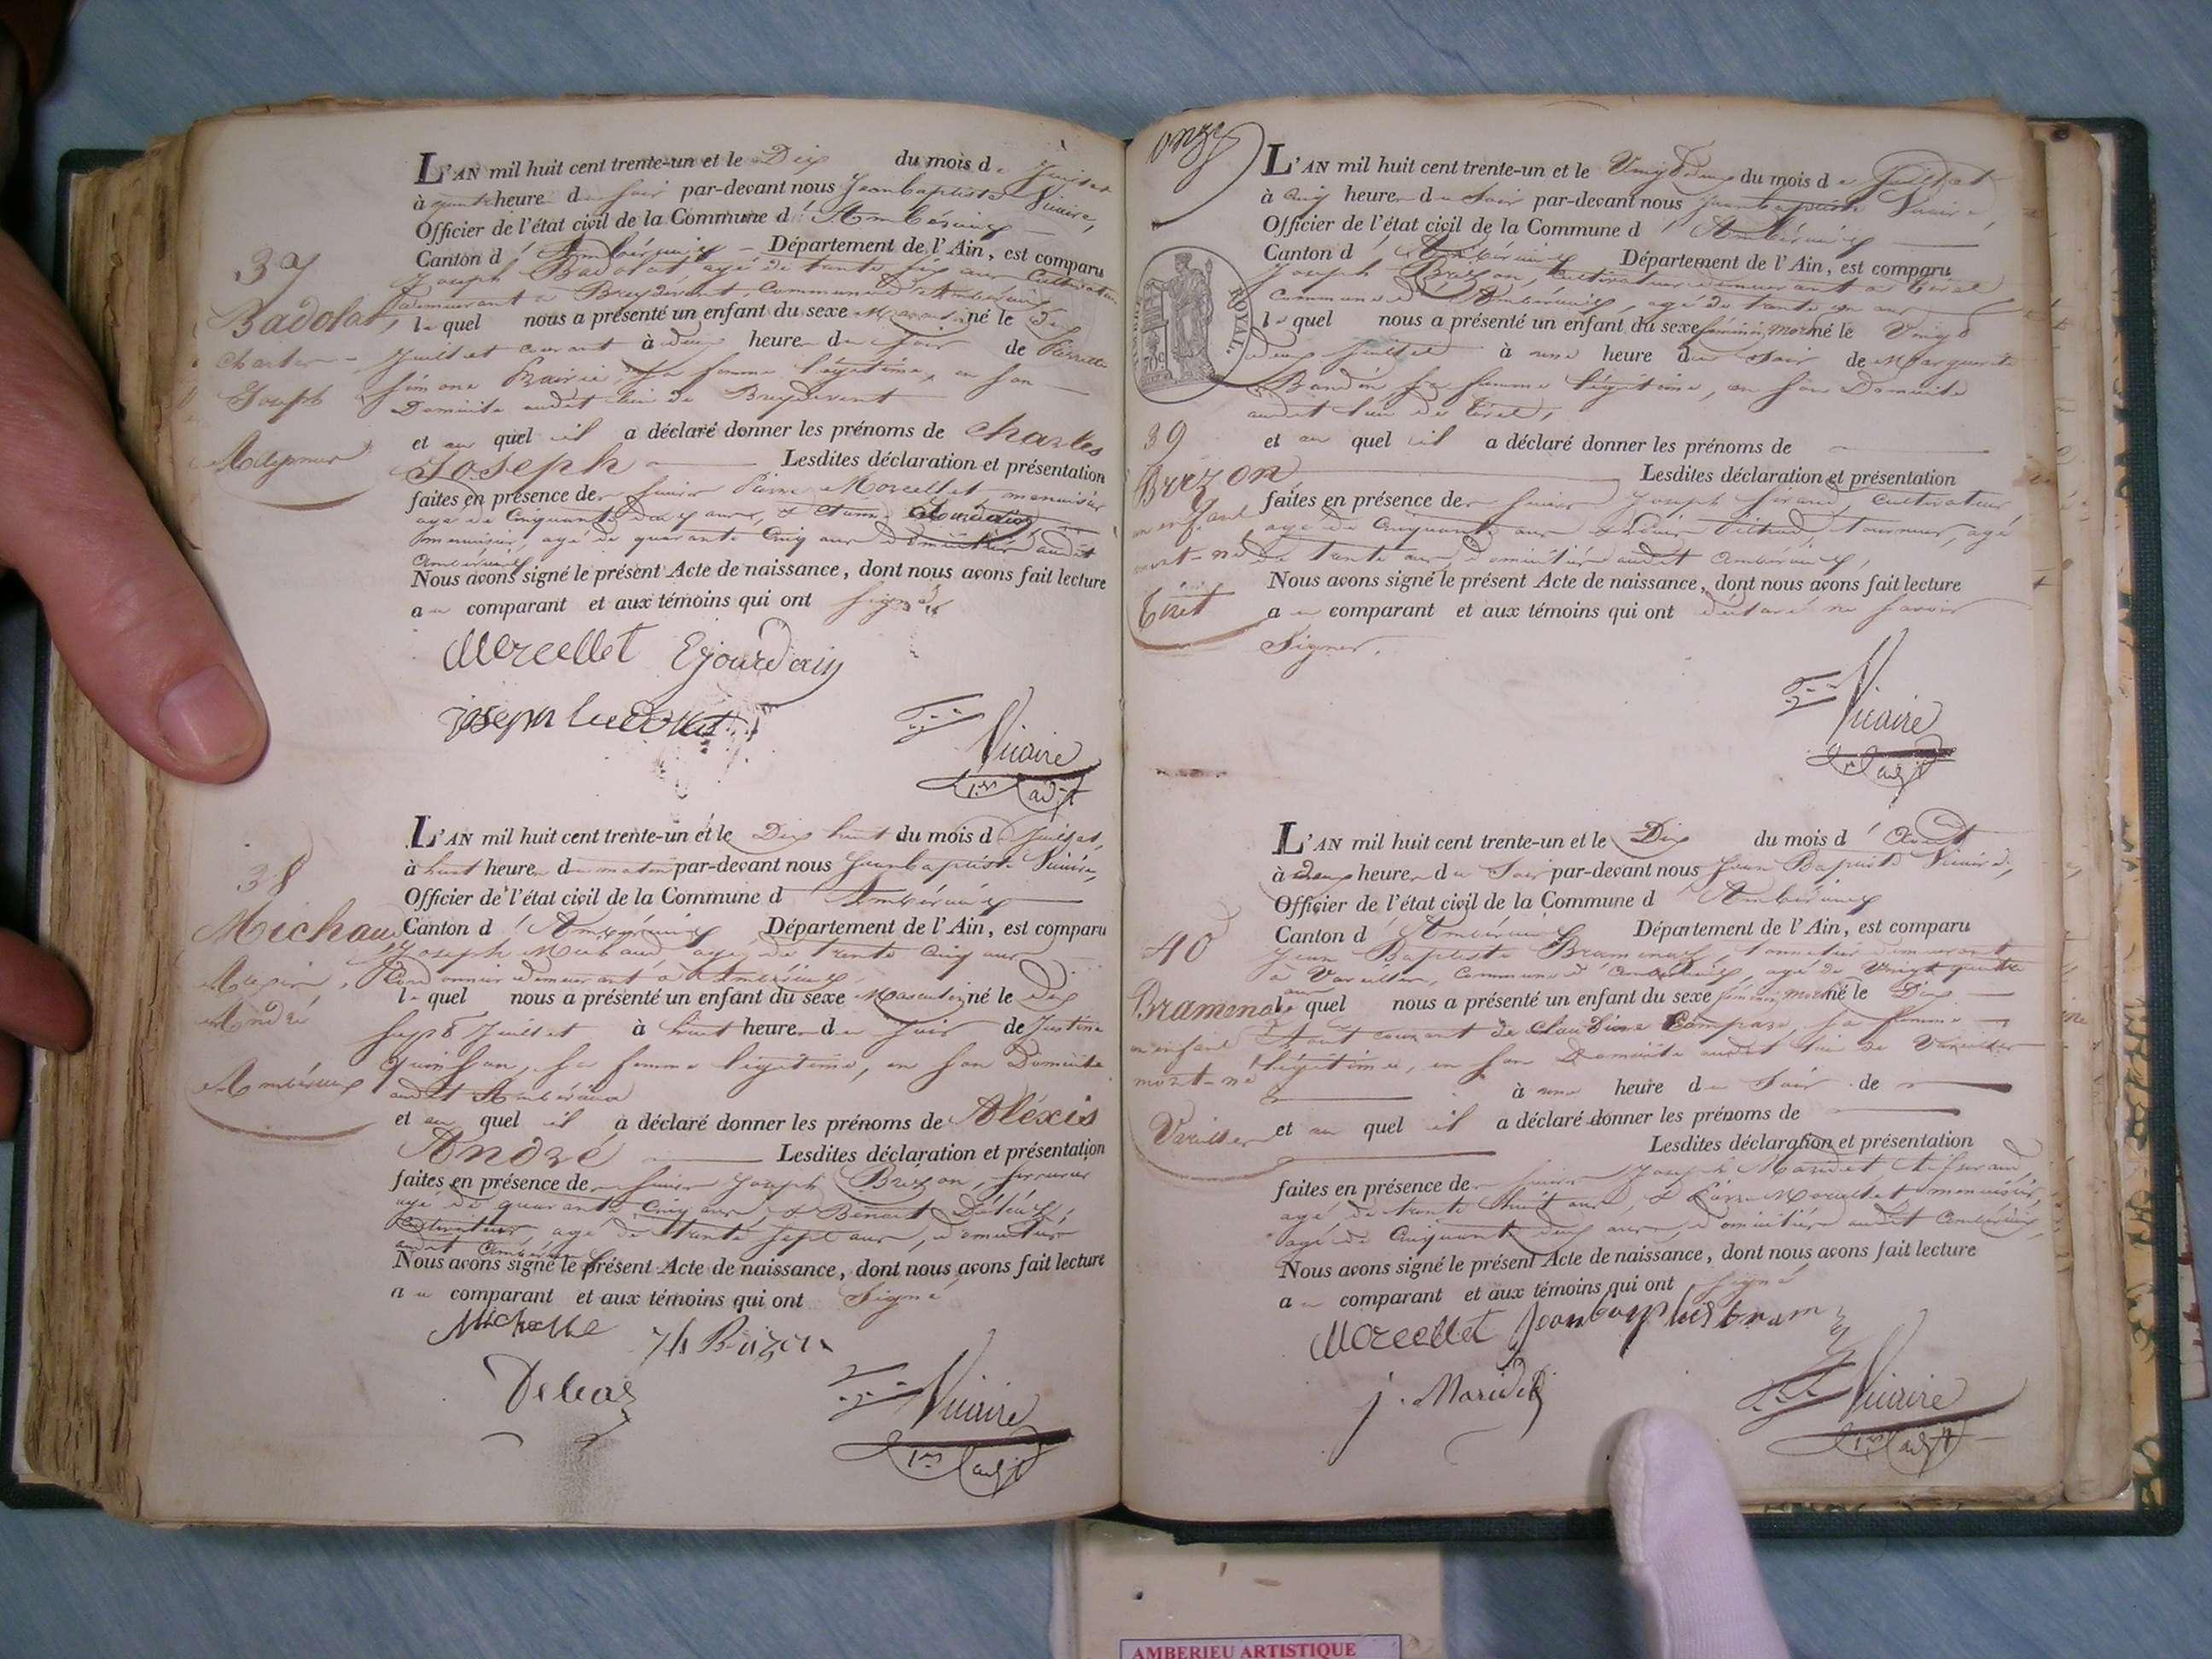 L'AN mil huit cent trente-un et le Dix du mois de Juillet
à quatre heure du soir par-devant nous Jean baptiste Vicaire,
Officier de l'état civil de la Commune d' Ambérieux
Canton d' Ambérieux Département de l'Ain, est comparu
Joseph Badolat, agé de trente six ans Cultivateur
demeurant à Breydevent, Commune d'Ambérieux
lequel nous a présenté un enfant du sexe Masculin né le Dix
Juillet courant à deux heure du soir de Pierrette
Simone sa femme légitime, en son
Domicile audit lieu de Breydevent
et au quel il a déclaré donner les prénoms de Charles
Joseph Lesdites déclaration et présentation
faites en présence de Pierre Morcellet, menuisier
agé de Cinquante deux ans, & Jourdain
menuisier, agé de quarante Cinq ans domiciliés audit
Ambérieux
Nous avons signé le présent Acte de naissance, dont nous avons fait lecture
au comparant et aux témoins qui ont signé
Morcellet Ejourdain
Joseph
Vicaire
1er adjt
37
Badolat,
Charles
Joseph
L'AN mil huit cent trente-un et le Dix huit du mois de Juillet,
à huit heure du matin par-devant nous Jean baptiste Vicaire,
Officier de l'état civil de la Commune d' Ambérieux
Canton d' Ambérieux Département de l'Ain, est comparu
Joseph Michaud, agé de trente Cinq ans
Cordonnier demeurant à Ambérieux
lequel nous a présenté un enfant du sexe Masculin né le dix
sept Juillet à huit heure du soir de Justine
Quinson, sa femme légitime, en son Domicile
audit Ambérieux
et au quel il a déclaré donner les prénoms de Aléxis
André Lesdites déclaration et présentation
faites en présence de Joseph Brizon,
agé de quarante Cinq ans, & Benoit
Cultivateur, agé de trente sept ans, domiciliés
audit Ambérieux
Nous avons signé le présent Acte de naissance, dont nous avons fait lecture
au comparant et aux témoins qui ont Signé
Vicaire
1er adjt
38
Michaud
André
Ambérieux
onze
ROYAL.
L'AN mil huit cent trente-un et le Vingt deux du mois de Juillet
à Cinq heure du Soir par-devant nous Jean baptiste Vicaire,
Officier de l'état civil de la Commune d' Ambérieux
Canton d' Ambérieux Département de l'Ain, est comparu
Joseph Brezon, Cultivateur demeurant à Tiret
Commune d'Ambérieux, agé de trente un ans
lequel nous a présenté un enfant du sexe féminin mort né le Vingt
deux Juillet à une heure du Soir de Marguerite
Bandin sa femme légitime, en son Domicile
audit lieu de Tiret,
et au quel il a déclaré donner les prénoms de
Lesdites déclaration et présentation
faites en présence de Joseph Cultivateur
agé de Cinquante ans & Louis tourneur, agé
de trente ans, domiciliés audit Ambérieux,
Nous avons signé le présent Acte de naissance, dont nous avons fait lecture
au comparant et aux témoins qui ont déclaré ne savoir
Signer.
Vicaire
1er adjt
39
Brezon
un enfant
mort-né
Tiret
L'AN mil huit cent trente-un et le Dix du mois d' Aout
à deux heure du Soir par-devant nous Jean Baptiste Vicaire,
Officier de l'état civil de la Commune d' Ambérieux
Canton d' Ambérieux Département de l'Ain, est comparu
Jean Baptiste tonnelier demeurant
à Vareilles, Commune d'Ambérieux, agé de Vingt quatre
ans
lequel nous a présenté un enfant du sexe féminin mort né le Dix
Aout courant de Claudine sa femme
légitime, en son Domicile audit lieu de Vareilles
à une heure du Soir de
et au quel il a déclaré donner les prénoms de
Lesdites déclaration et présentation
faites en présence de Joseph Maridet,
agé de trente huit ans, & Pierre Morcellet menuisier,
agé de Cinquante deux ans, domiciliés audit Ambérieux,
Nous avons signé le présent Acte de naissance, dont nous avons fait lecture
au comparant et aux témoins qui ont signé
Morcellet
j. Maridet
Vicaire
1er adjt
40
un enfant
mort-né
Vareilles
AMBERIEU ARTISTIQUE